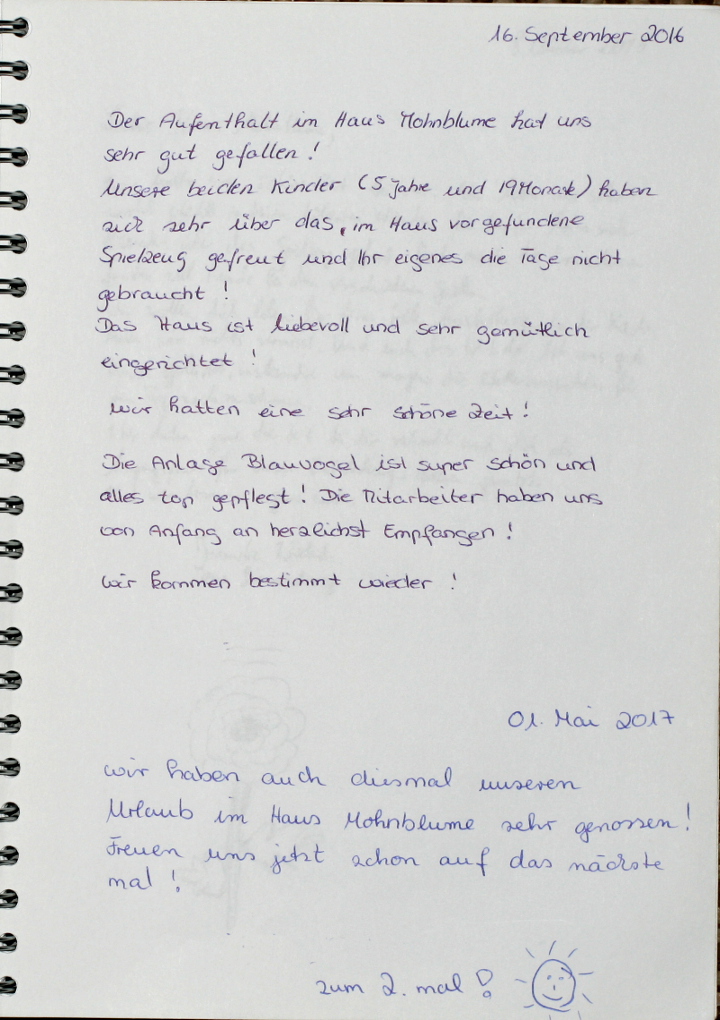 16. September 2016
Der Aufenthalt im Haus Mohnblume hat uns
sehr gut gefallen!
Unsere beiden Kinder (5 Jahre und 19 Monate) haben
sich sehr über das, im Haus vorgefundene
Spielzeug gefreut und Ihr eigenes die Tage nicht
gebraucht!
Das Haus ist liebevoll und sehr gemütlich
eingerichtet!
Wir hatten eine sehr schöne Zeit!
Die Anlage Blauvogel ist super schön und
alles top gepflegt! Die Mitarbeiter haben uns
von Anfang an herzlichst Empfangen!
Wir kommen bestimmt wieder!
01. Mai 2017
Wir haben auch diesmal unseren
Urlaub im Haus Mohnblume sehr genossen!
Freuen uns jetzt schon auf das nächste
mal!
zum 2. mal!